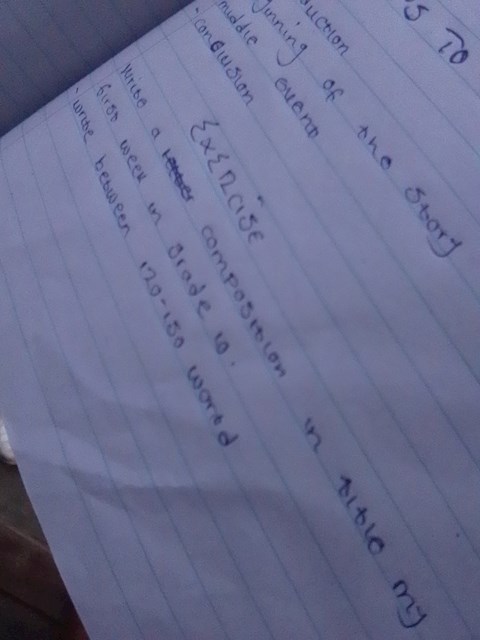 TO
duction
ginning of the story
middle events
. conclusion
EXERCISE
write a composition in title my
first week in grade 10.
. write between 120-150 world